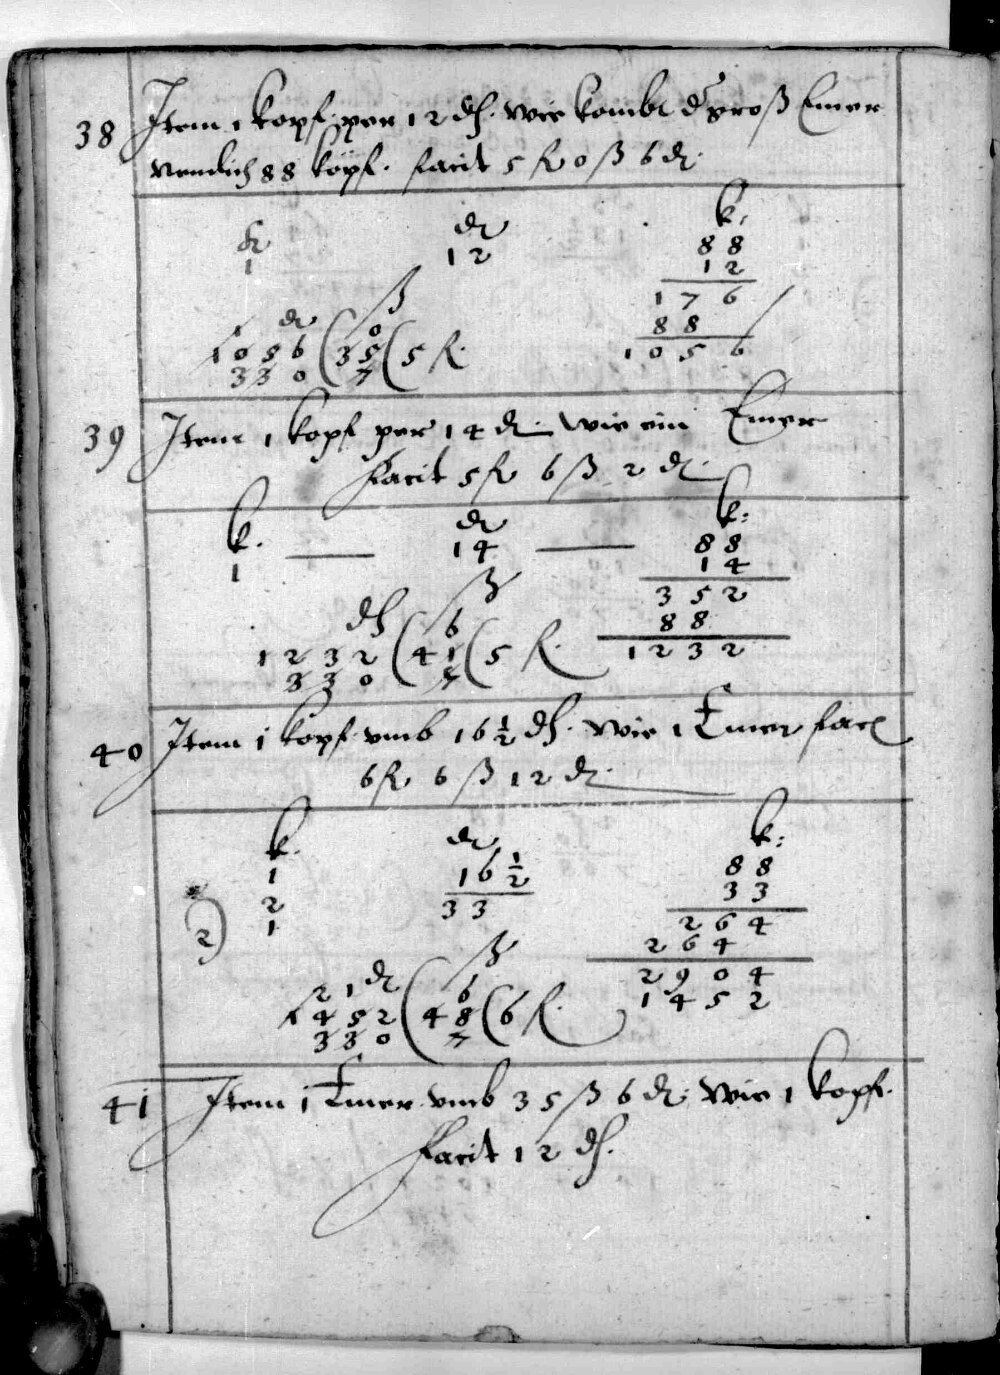 38 Item 1 kopf per 12 ₰. wie kombt d groß Emer
nemlich 88 köpf. facit 5 fl 0 ß 6 ₰.
k ₰ k.
1 12 88
12
176
88
1056
₰ ß
1
1056 ( 0
35 ( 5 fl.
330 7
39 Item 1 kopf per 14 ₰. wie ein Emer
Facit 5 fl 6 ß 2 ₰.
k. ₰ k:
1 14 88
14
352
88
1232
₰ ß
6
1232 ( 41 ( 5 fl.
330 7
40 Item 1 kopf vmb 16 1/2 ₰. wie 1 Emer fac
6 fl 6 ß 12 ₰.
k. ₰ k:
1 16 1/2 88
2 33 33
2) 1 264
264
2904
1452
₰ ß
21 6
1452 ( 48 ( 6 fl.
330 7
41 Item 1 Emer vmb 35 ß 6 ₰. wie 1 kopf.
Facit 12 ₰.